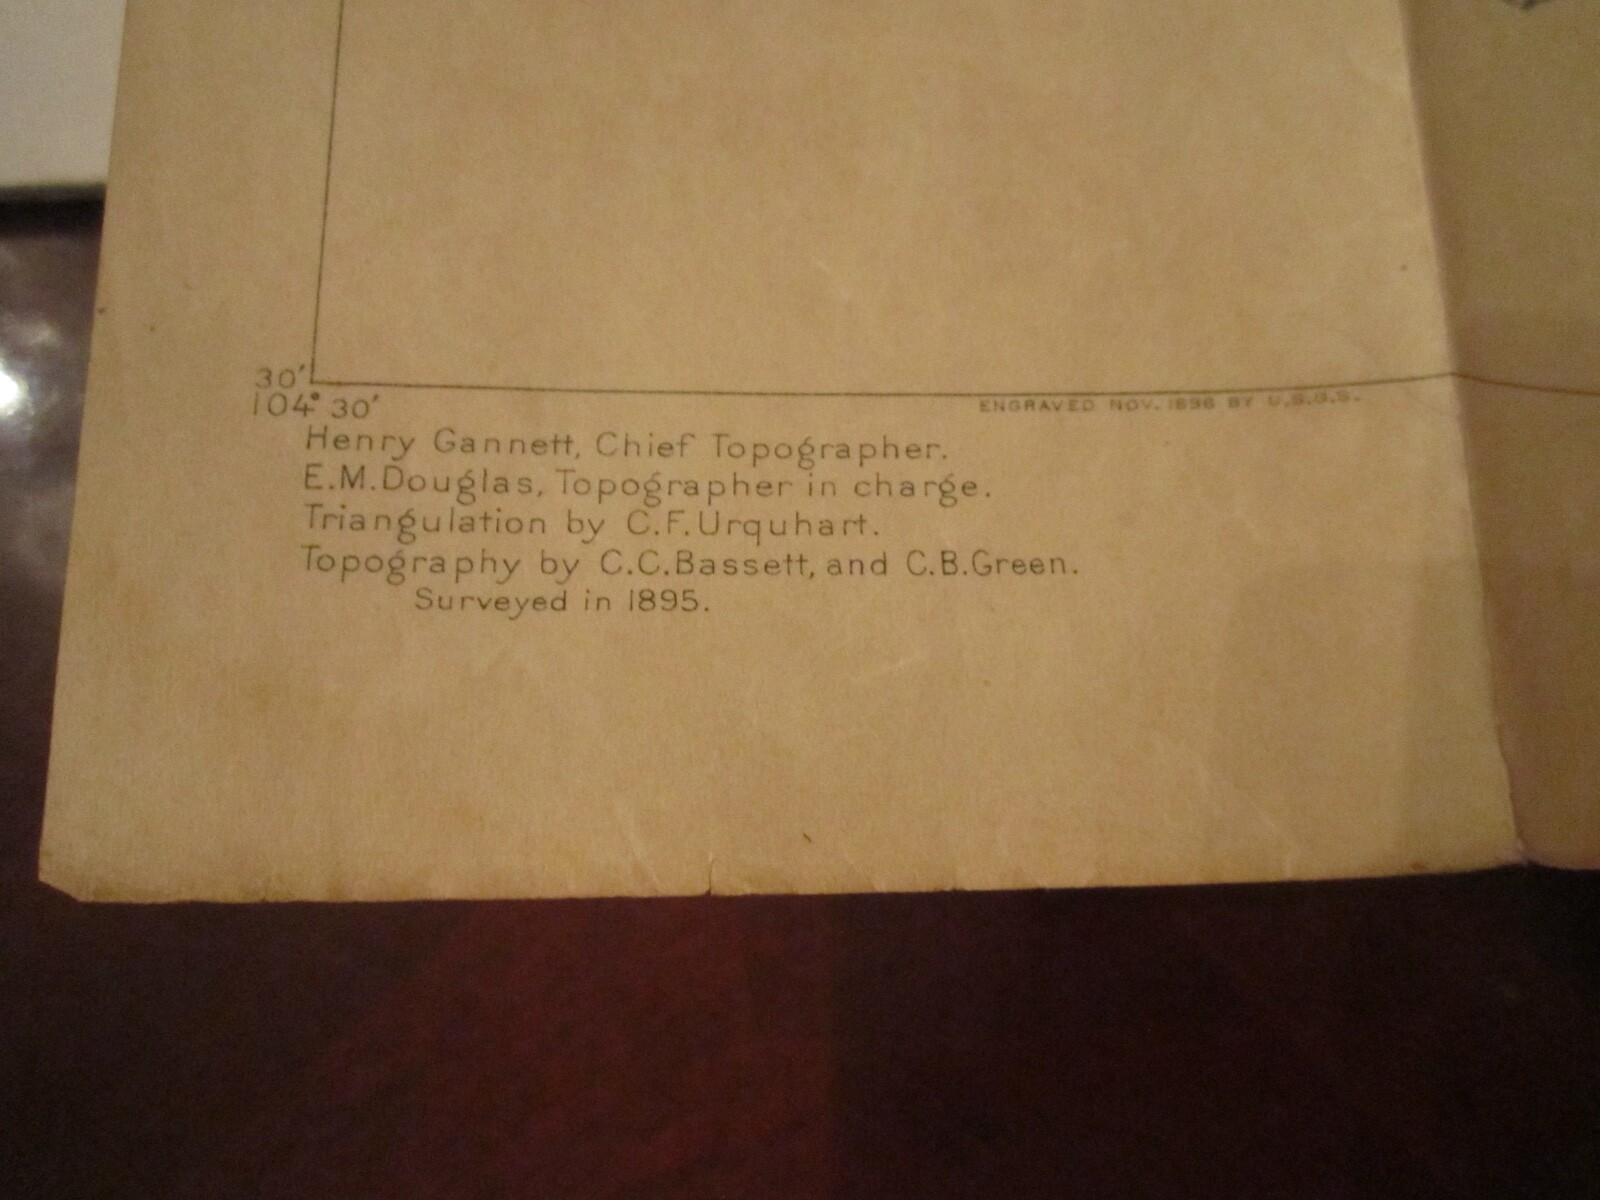 30'
104° 30'
ENGRAVED NOV. 1896 BY U.S.G.S.
Henry Gannett, Chief Topographer.
E.M.Douglas, Topographer in charge.
Triangulation by C.F.Urquhart.
Topography by C.C.Bassett, and C.B.Green.
Surveyed in 1895.